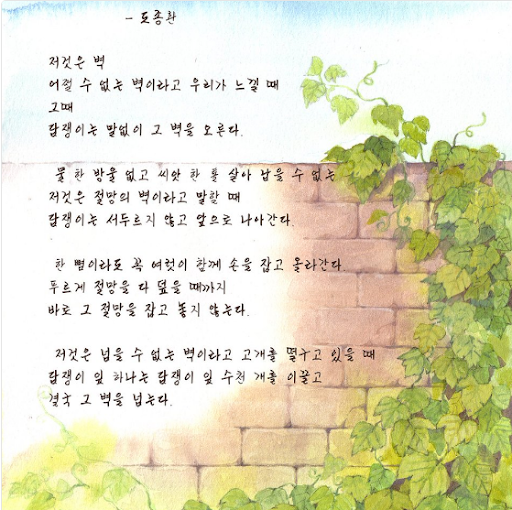 - 도종환
저것은 벽
어쩔 수 없는 벽이라고 우리가 느낄 때
그때
담쟁이는 말없이 그 벽을 오른다.
물 한 방울 없고 씨앗 한 톨 살아 남을 수 없는
저것은 절망의 벽이라고 말할 때
담쟁이는 서두르지 않고 앞으로 나아간다.
한 뼘이라도 꼭 여럿이 함께 손을 잡고 올라간다
푸르게 절망을 다 덮을 때까지
바로 그 절망을 잡고 놓지 않는다.
저것은 넘을 수 없는 벽이라고 고개를 떨구고 있을 때
담쟁이 잎 하나는 담쟁이 잎 수천 개를 이끌고
결국 그 벽을 넘는다.